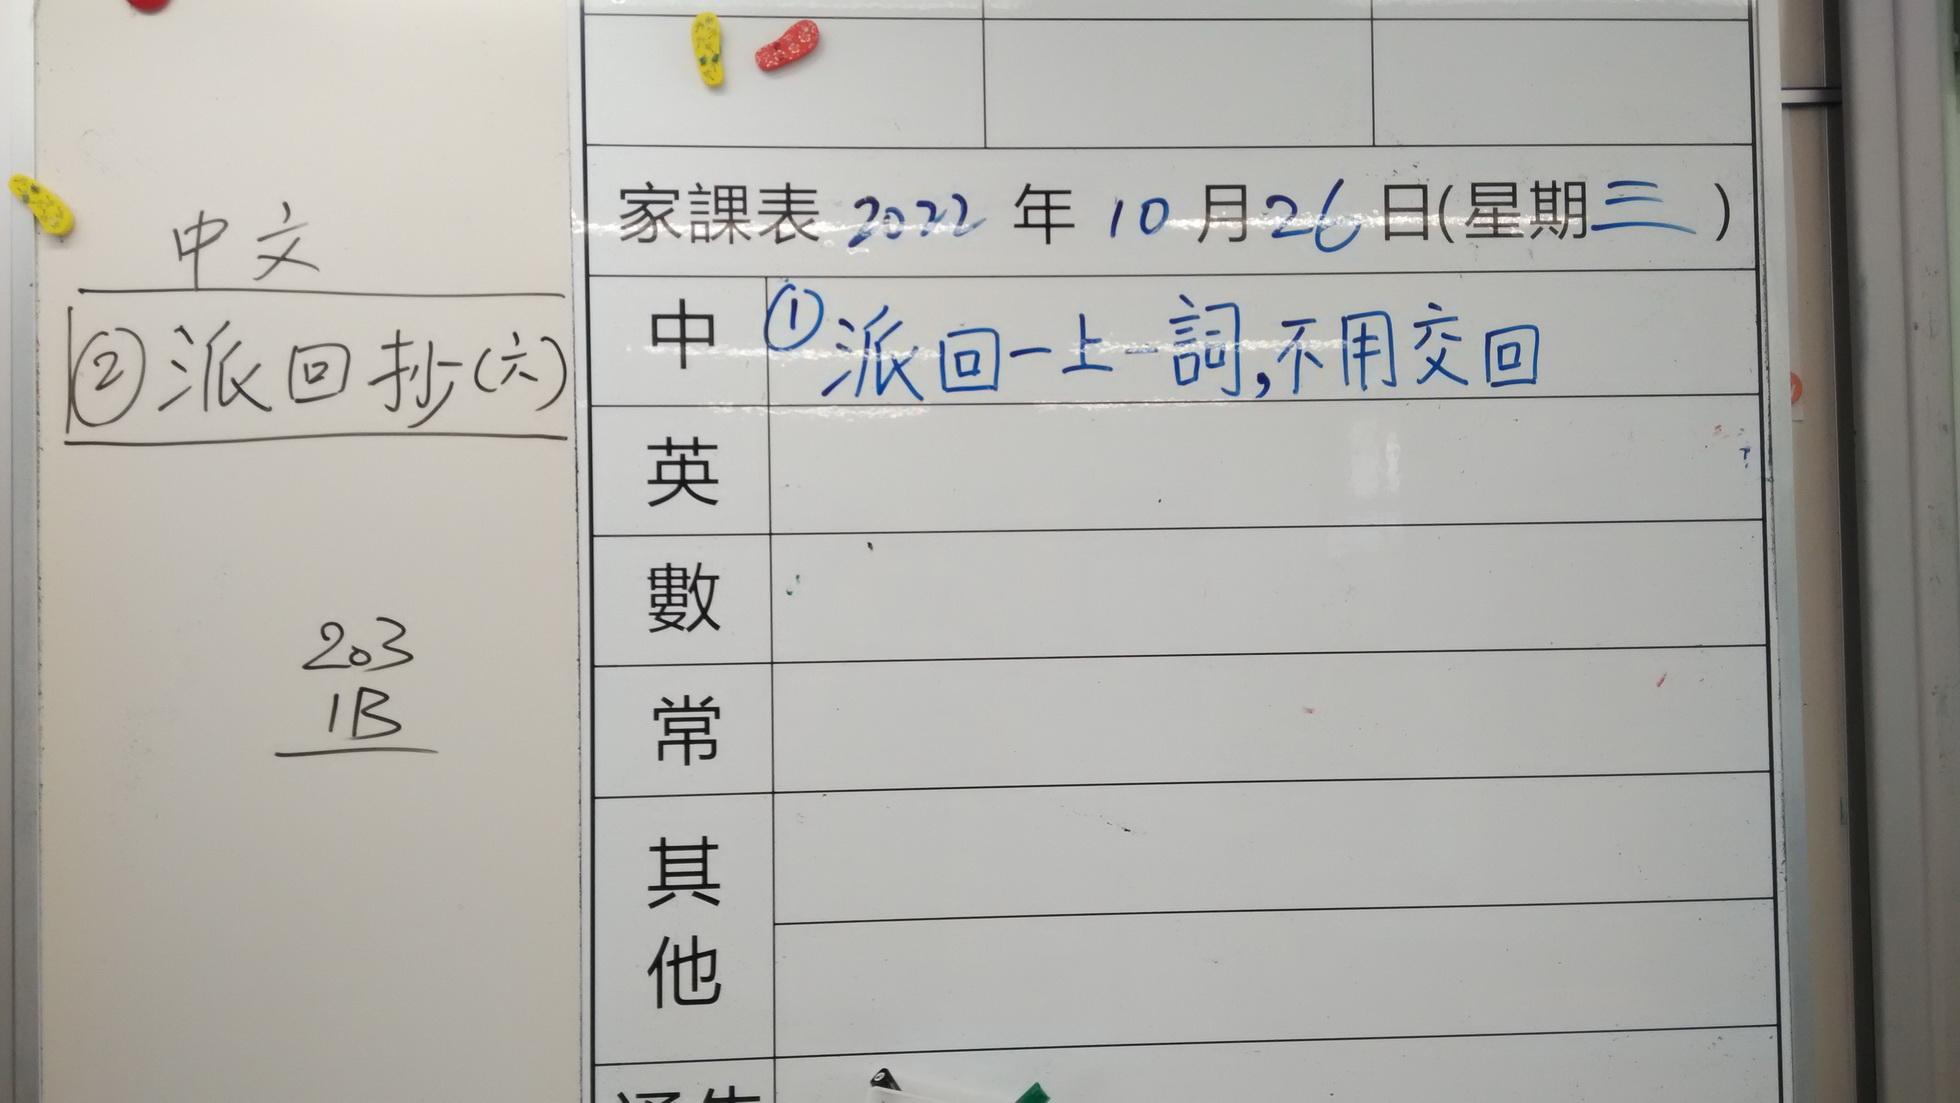 中文
②派回抄(六)
203
1B
家課表 2022 年 10 月 26 日(星期三)
中 ①派回一上一詞,不用交回
英
數
常
其他
通告